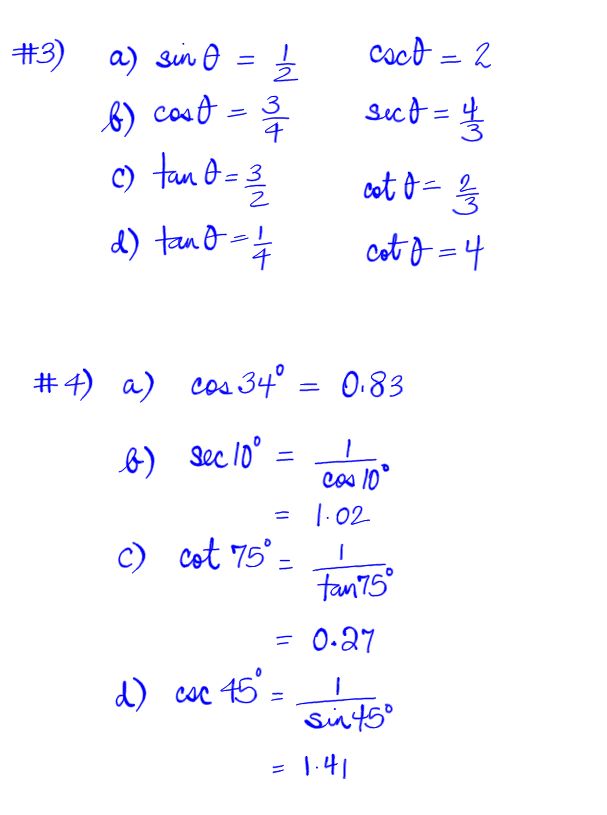 #3) a) sin θ = 1/2 csc θ = 2
b) cos θ = 3/4 sec θ = 4/3
c) tan θ = 3/2 cot θ = 2/3
d) tan θ = 1/4 cot θ = 4
#4) a) cos 34° = 0.83
b) sec 10° = 1/cos 10°
= 1.02
c) cot 75° = 1/tan 75°
= 0.27
d) csc 45° = 1/sin 45°
= 1.41